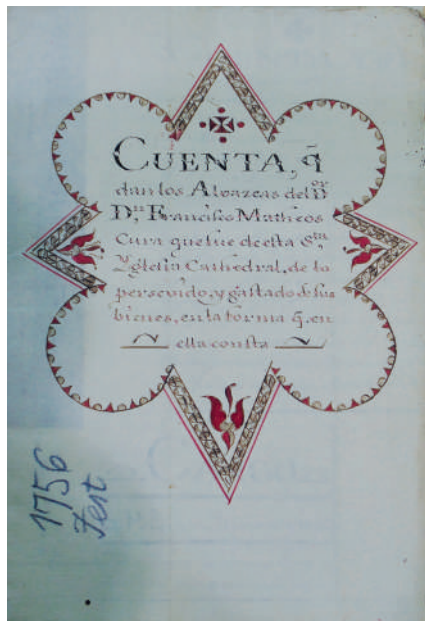 CUENTA, q̃
dan los Alvazeas del D.ᵒʳ
D.ⁿ Francisco Matheos
Cura que fue de esta S.ᵗᵃ
Yglesia Cathedral, de lo
persevido, y gastado de sus
bienes, en la forma q̃. en
ella consta
1756
Test